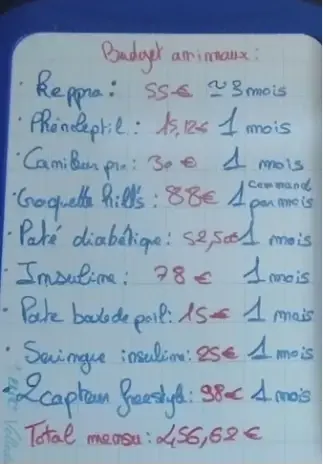 Budget animaux :
· Keppra : 55 € ≃ 3 mois
· Phénoleptil : 15,12 € 1 mois
· Canibon pro : 30 € 1 mois
· Croquette hill's : 88 € 1 command par mois
· Paté diabétique : 52,50 € 1 mois
· Insuline : 78 € 1 mois
· Pate boule de poil : 15 € 1 mois
· Seringue insuline : 25 € 1 mois
· 2 capteur freestyle : 98 € 1 mois
Total mensu : 456,62 €